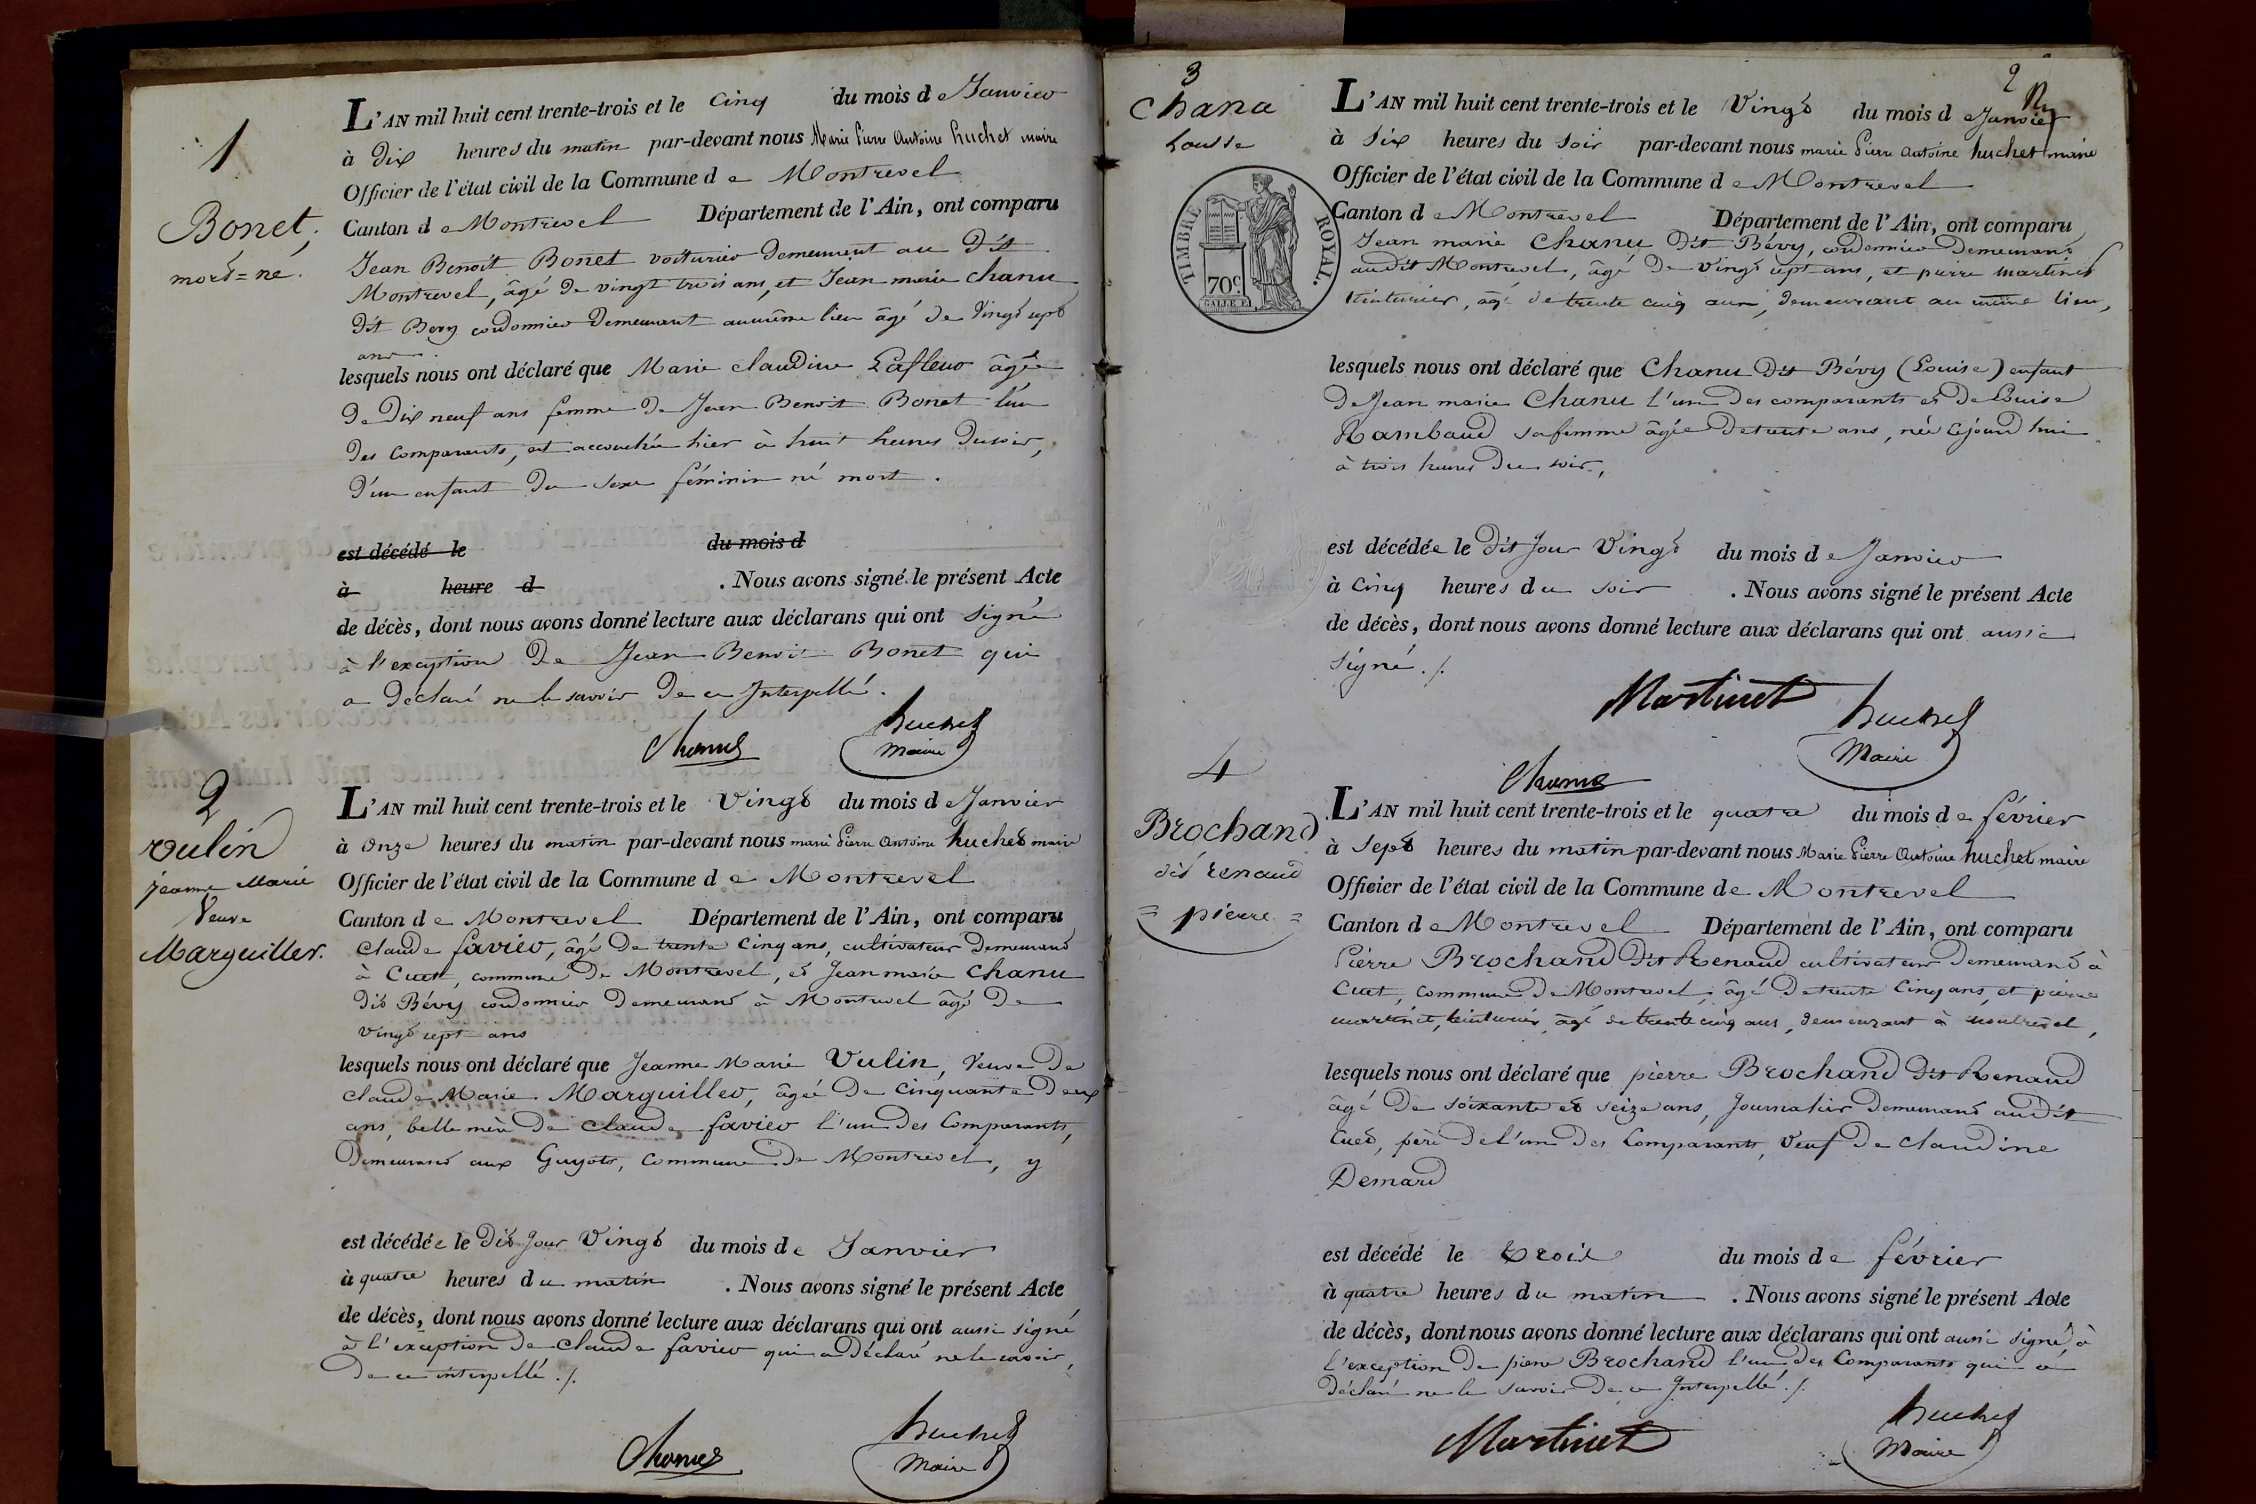 1
Bonet,
mort=né.
L'AN mil huit cent trente-trois et le Cinq du mois de Janvier
à Dix heures du matin par-devant nous Marie Pierre Antoine huchet maire
Officier de l'état civil de la Commune de Montrevel
Canton de Montrevel Département de l'Ain, ont comparu
Jean Benoit Bonet voiturier demeurant au dit
Montrevel, âgé de vingt trois ans, et Jean marie chanu
dit Bevy cordonnier demeurant au même lieu âgé de Vingt sept
ans.
lesquels nous ont déclaré que Marie claudine Lafleur âgée
de dix neuf ans femme de Jean Benoit Bonet l'un
des Comparants, est accouchée hier à huit heures du soir,
d'un enfant du sexe féminin né mort.
est décédé le du mois d
à heure d . Nous avons signé le présent Acte
de décès, dont nous avons donné lecture aux déclarans qui ont signé
à l'exception de Jean Benoit Bonet qui
a déclaré ne le savoir de ce Interpellé.
Chanu huchet
Maire
2
vulin
jeanne Marie
Veuve
Marguiller.
L'AN mil huit cent trente-trois et le Vingt du mois de Janvier
à Onze heures du matin par-devant nous marie Pierre Antoine huchet maire
Officier de l'état civil de la Commune de Montrevel
Canton de Montrevel Département de l'Ain, ont comparu
Claude favier, âgé de trente cinq ans, cultivateur demeurant
à Cuet, commune de Montrevel, et Jean marie Chanu
dit Bévy cordonnier demeurant à Montrevel âgé de
vingt sept ans
lesquels nous ont déclaré que Jeanne Marie Vulin, Veuve de
claude Marie Marguiller, âgée de cinquante deux
ans, belle mère de claude favier l'un des Comparants,
demeurant aux Guyots, commune de Montrevel, y
est décédée le dit jour Vingt du mois de Janvier
à quatre heures du matin . Nous avons signé le présent Acte
de décès, dont nous avons donné lecture aux déclarans qui ont aussi signé
à l'exception de claude favier qui a déclaré ne le savoir,
de ce interpellé ./.
Chanu huchet
Maire
2
3
Chana
Louise
TIMBRE ROYAL.
70c.
L'AN mil huit cent trente-trois et le Vingt du mois de Janvier
à Six heures du soir par-devant nous marie Pierre Antoine huchet maire
Officier de l'état civil de la Commune de Montrevel
Canton de Montrevel Département de l'Ain, ont comparu
Jean marie Chanu dit Bévy, cordonnier demeurant
audit Montrevel, âgé de vingt sept ans, et pierre martinet
teinturier, âgé de trente cinq ans, demeurant au même lieu,
lesquels nous ont déclaré que Chanu dit Bévy (Louise) enfant
de Jean marie Chanu l'un des comparants et de Louise
Rambaud sa femme âgée de trente ans, née cejourd'hui
à trois heures du soir,
est décédée le dit jour Vingt du mois de Janvier
à Cinq heures du soir . Nous avons signé le présent Acte
de décès, dont nous avons donné lecture aux déclarans qui ont aussi
signé ./.
Martinet huchet
Maire
Chanu
4
Brochand
dit renaud
= pierre =
L'AN mil huit cent trente-trois et le quatre du mois de février
à Sept heures du matin par-devant nous Marie Pierre Antoine huchet maire
Officier de l'état civil de la Commune de Montrevel
Canton de Montrevel Département de l'Ain, ont comparu
Pierre Brochand dit Renaud cultivateur demeurant à
Cuet, commune de Montrevel, âgé de trente Cinq ans, et pierre
martinet, teinturier, âgé de trente cinq ans, demeurant à montrevel,
lesquels nous ont déclaré que pierre Brochand dit Renaud
âgé de soixante et seize ans, Journalier demeurant au dit
Cuet, père de l'un des Comparants, Veuf de claudine
Demard
est décédé le trois du mois de février
à quatre heures du matin . Nous avons signé le présent Acte
de décès, dont nous avons donné lecture aux déclarans qui ont aussi signé, à
l'exception de pierre Brochand l'un des Comparants qui a
déclaré ne le savoir de ce Interpellé ./.
Martinet huchet
Maire